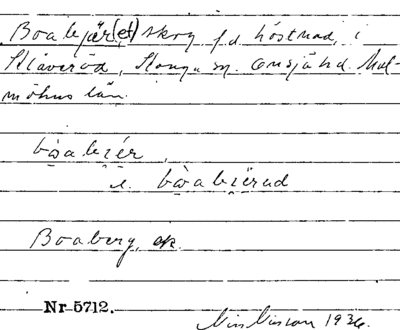 Boakjär(et) skog f.d. höstnad, i
Stäveröd, Slång. sn. Onsjö hd. Mal-
möhus län.
bòakjér,
i. bòakjërad
Boaberg, ek.
Nr 5712.
Nils Nilsson 1936.